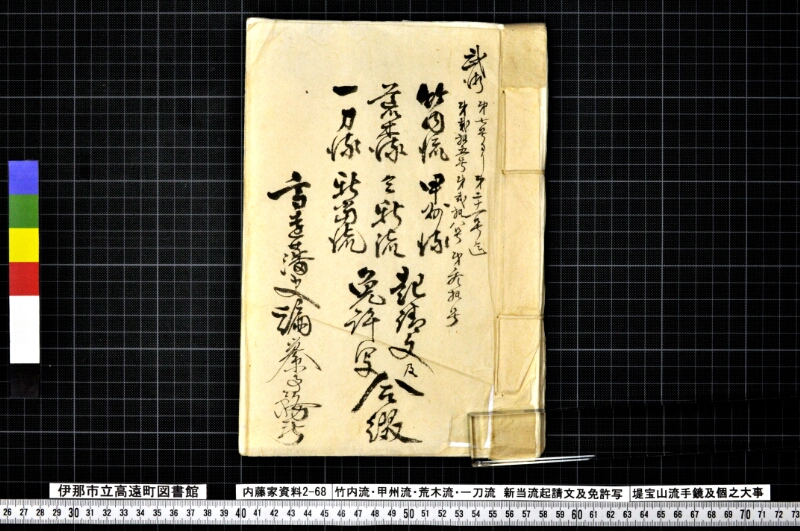 武術
第七号ヨリ第二十一号迄
第貳拾五号第貳拾八号第参拾号
竹内流 甲州流
荒木流 心新流
一刀流 新當流
起請文及
免許写 合綴
高遠藩史編纂事務所
伊那市立高遠町図書館
内藤家資料2-68
竹内流・甲州流・荒木流・一刀流 新当流起請文及免許写
堤宝山流手鏡及個之大事
26 27 28 29 30 31 32 33 34 35 36 37 38 39 40 41 42 43 44 45 46 47 48 49 50 51 52 53 54 55 56 57 58 59 60 61 62 63 64 65 66 67 68 69 70 71 72 73